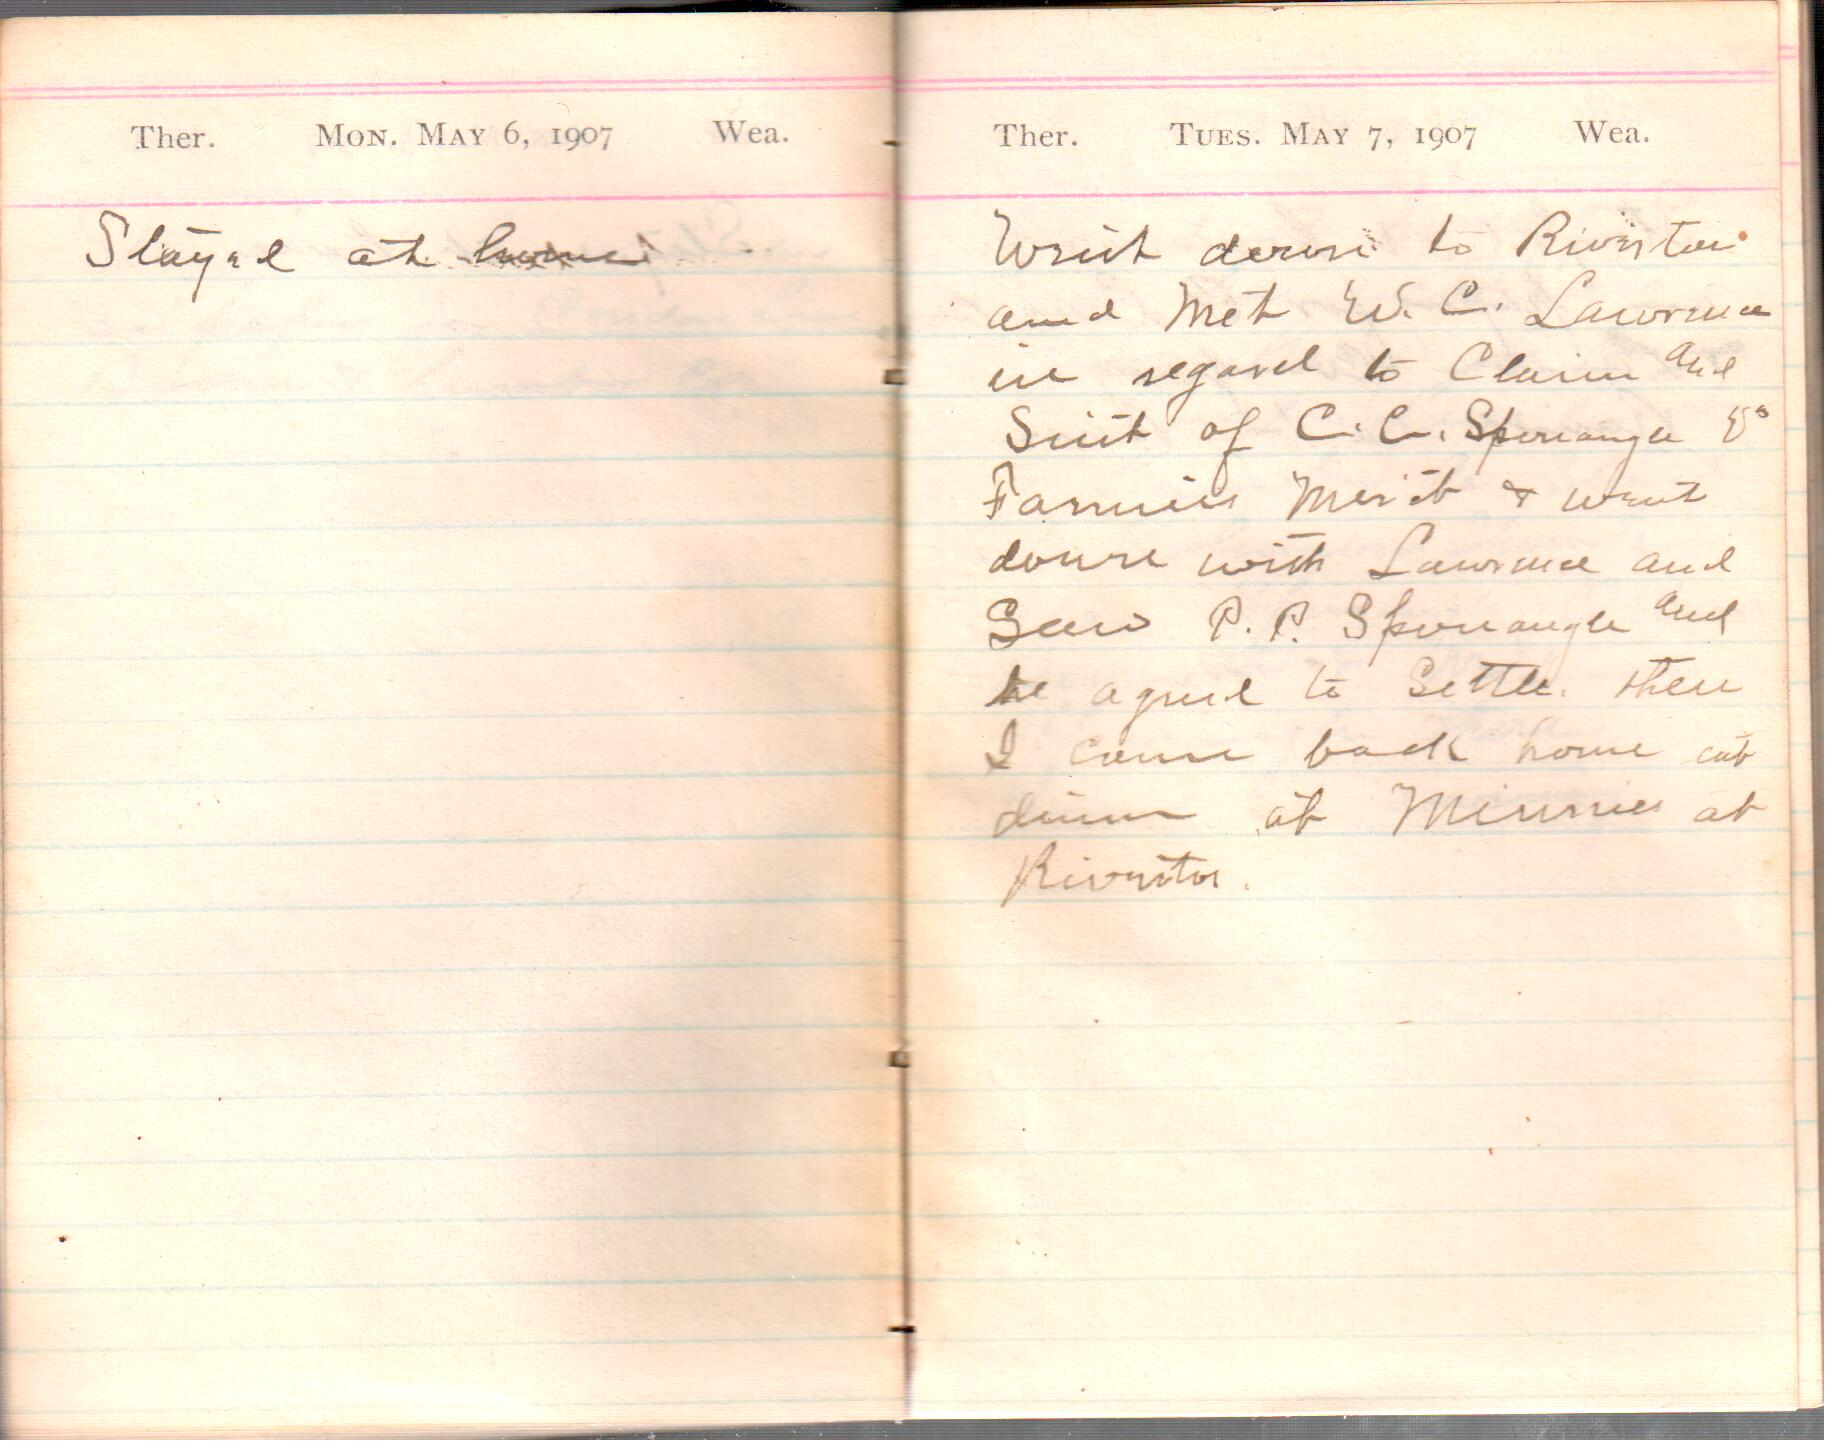 Ther. MON. MAY 6, 1907 Wea.
Stayed at home
Ther. TUES. MAY 7, 1907 Wea.
Went down to Riverton
and Met W. C. Lawrence
in regard to Claim and
Suit of C. C. Sponaugle Vs
Farmers Merct & went
down with Lawrence and
Saw P. P. Sponaugle and
he agred to Settle. then
I came back home eat
dinner at Minnies at
Riverton.